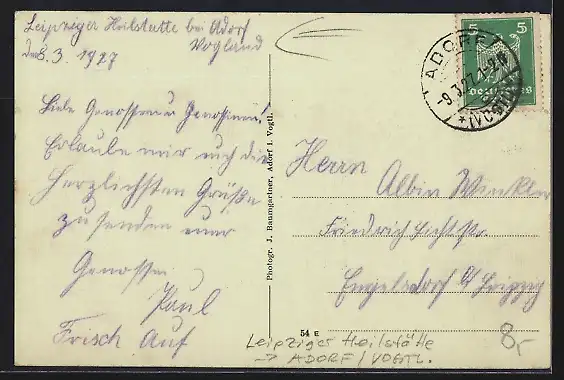 Leipziger Heilstätte bei Adorf
Vogland
den 8.3.1927
Liebe Genossen u Genossinen!
Erlaube mir euch die
herzlichsten Grüße
zu senden euer
Genosse
Paul
Frisch Auf
Photogr. J. Baumgartner, Adorf i. Vogtl.
54 E
5 5
ADORF
(VOGTL.)
-9.3.27.
Herrn
Albin Winkler
Friedrich Listst.
Engelsdorf b/ Leipzig
Leipziger Heilstätte
→ ADORF / VOGTL.
8,-